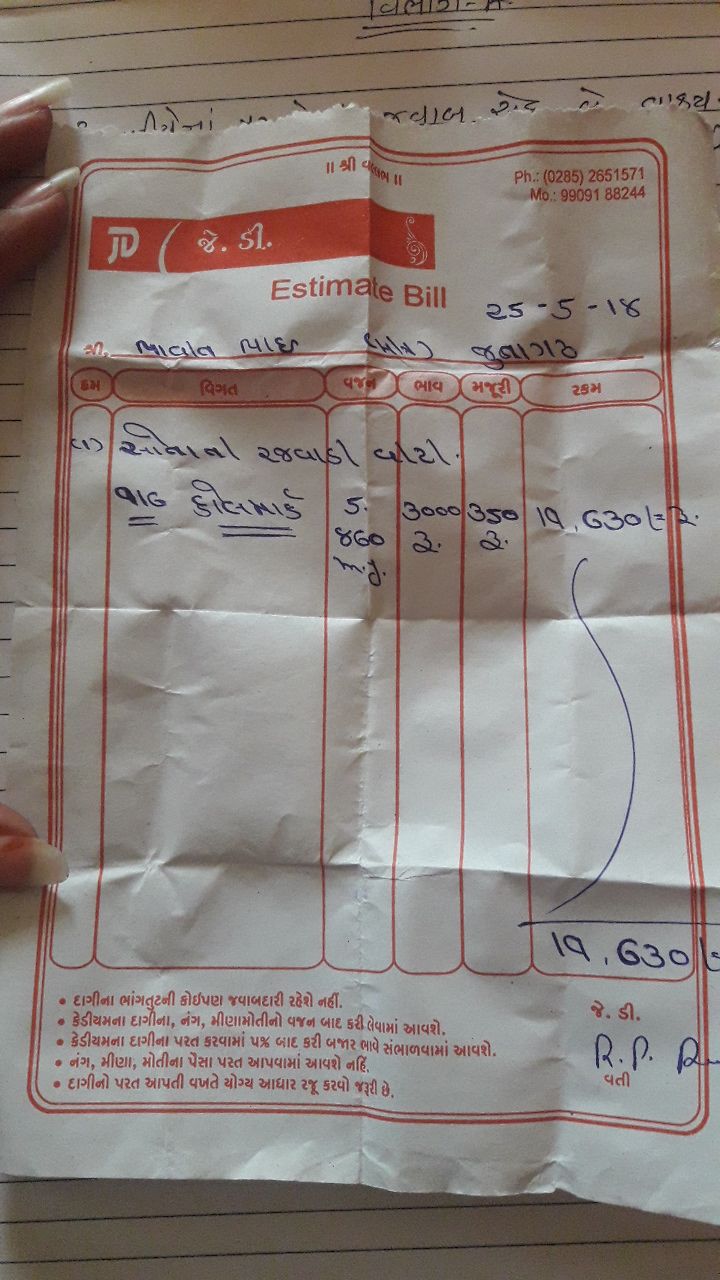 વિભાગ-A
જવાબ એક બે વાક્ય
॥ શ્રી વલ્લભ ॥
Ph.: (0285) 2651571
Mo.: 99091 88244
JD જે. ડી.
Estimate Bill
૨૫-5-૧૪
શ્રી. ભાઇ જુનાગઢ
ક્રમ વિગત વજન ભાવ મજૂરી રકમ
(૧) સોનાની રજવાડી વીંટી.
હોલમાર્ક 5. 3000 350 ૧૧,630/= રૂ.
૪60 રૂ. રૂ.
૧૧,630/=
• દાગીના ભાંગતુટની કોઈપણ જવાબદારી રહેશે નહીં.
• કેડીયમના દાગીના, નંગ, મીણામોતીનો વજન બાદ કરી લેવામાં આવશે.
• કેડીયમના દાગીના પરત કરવામાં ૫% બાદ કરી બજાર ભાવે સંભાળવામાં આવશે.
• નંગ, મીણા, મોતીના પૈસા પરત આપવામાં આવશે નહિં.
• દાગીનો પરત આપતી વખતે યોગ્ય આધાર રજૂ કરવો જરૂરી છે.
જે. ડી.
R.P.
વતી